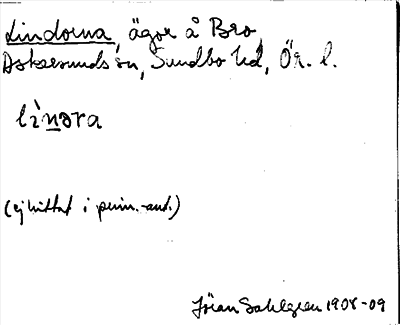 Lindorna, ägor å Bro,
Askersunds sn, Sundbo hd, Ör. l.
lìnəra
(ej hittat i prim.-ant.)
Jöran Sahlgren 1908-09